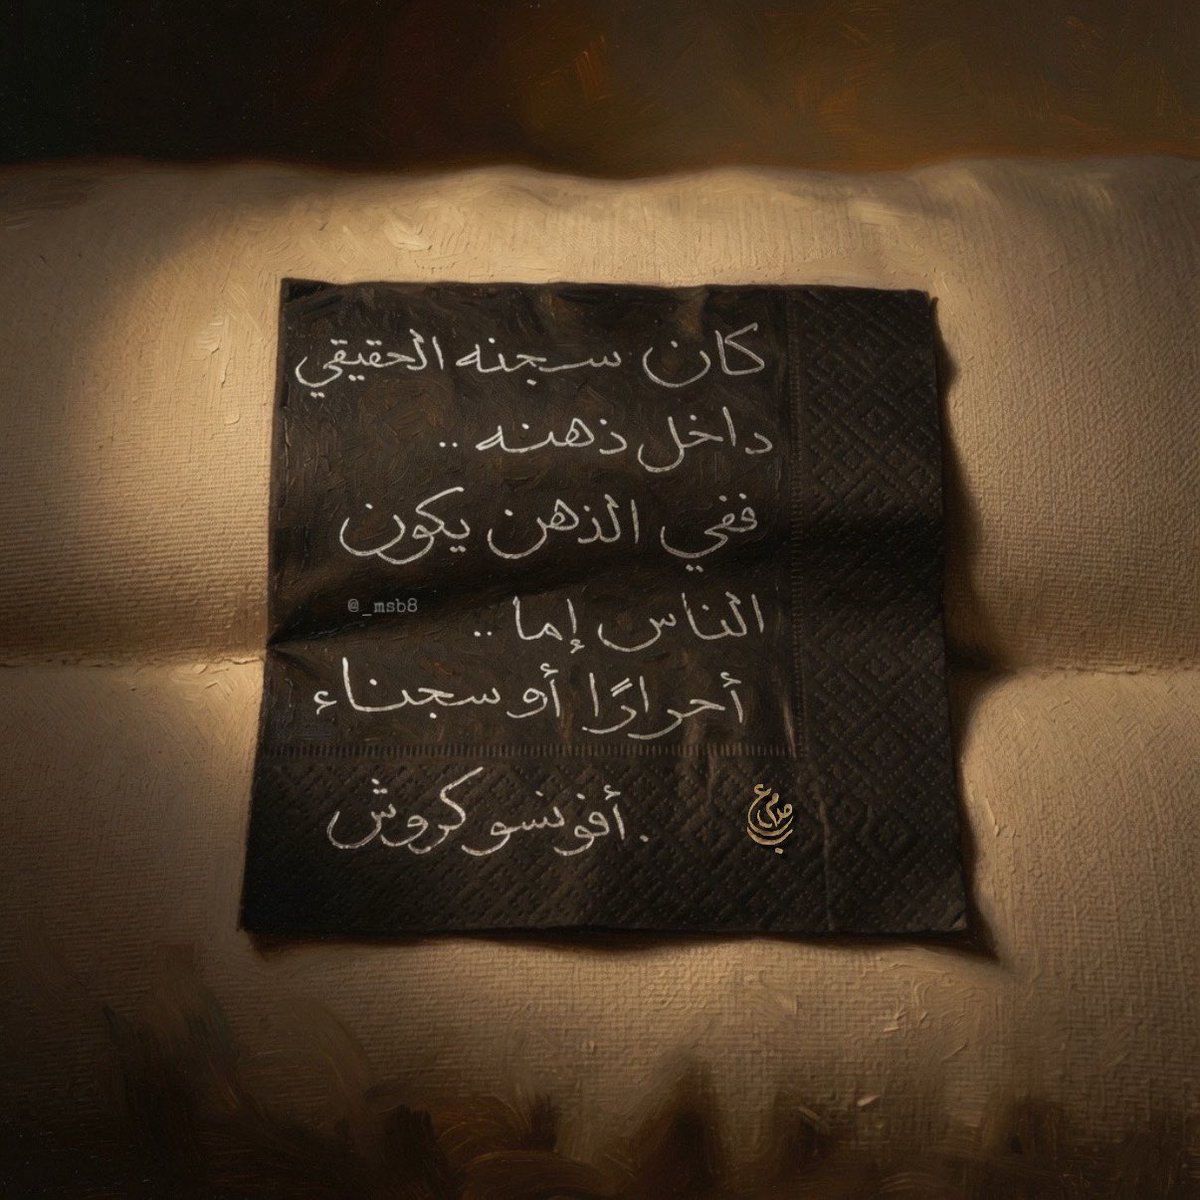 كان سجنه الحقيقي
داخل ذهنه ..
ففي الذهن يكون
الناس إما ..
@_msb8
أحرارًا أو سجناء
. أفونسو كروش